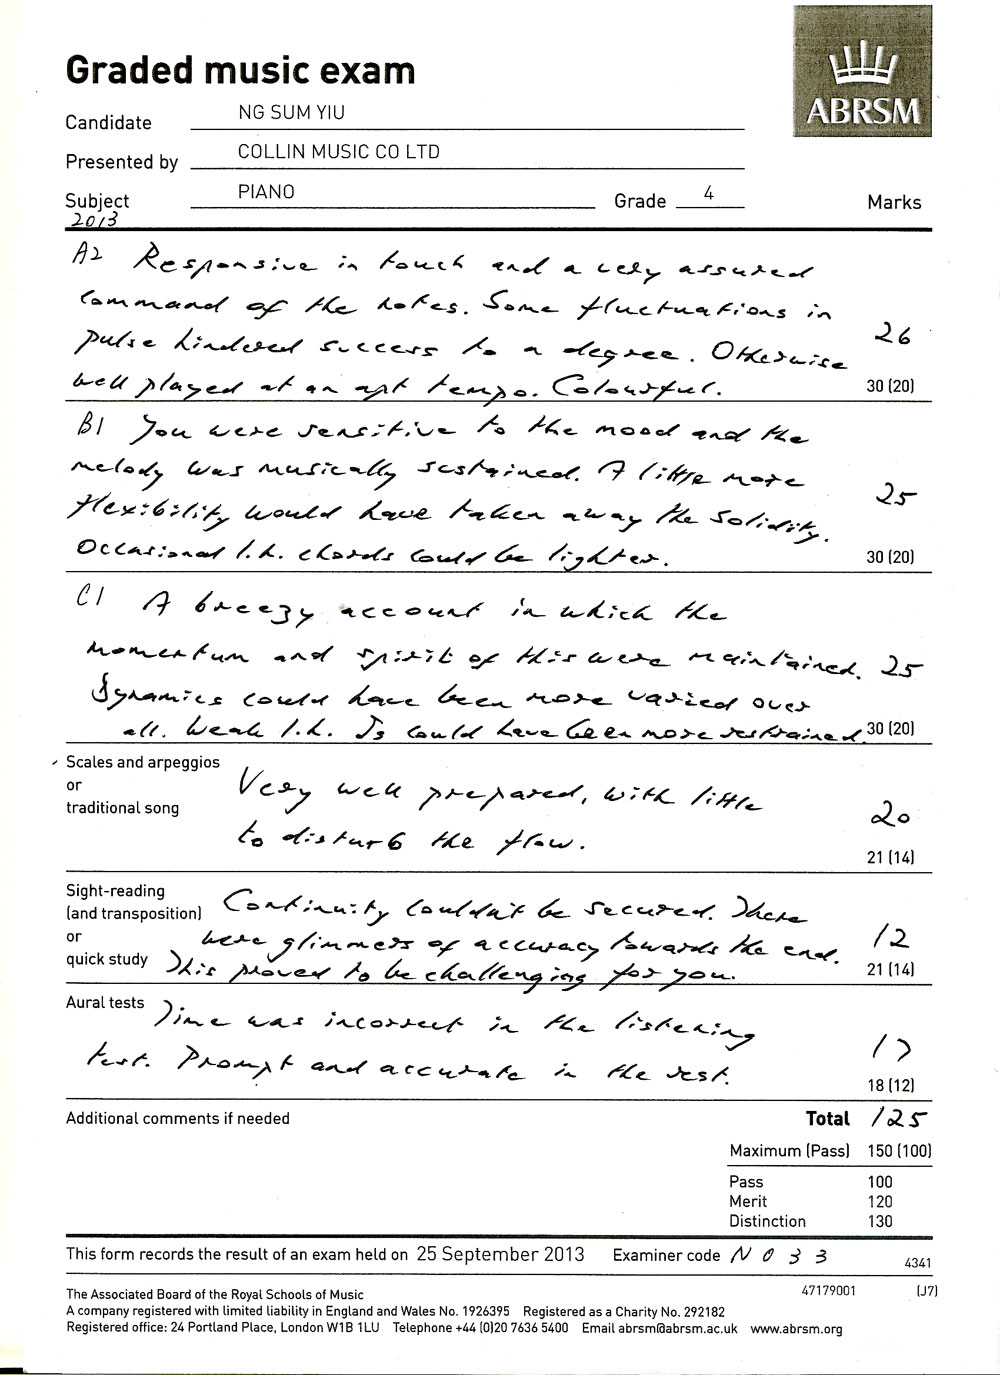 Graded music exam
ABRSM
Candidate NG SUM YIU
Presented by COLLIN MUSIC CO LTD
Subject PIANO Grade 4 Marks
2013
A2 Responsive in touch and a very assured
command of the notes. Some fluctuations in
pulse hindered success to a degree. Otherwise 26
well played at an apt tempo. Colourful. 30 (20)
B1 You were sensitive to the mood and the
melody was musically sustained. A little more
flexibility would have taken away the solidity. 25
Occasional l.h. chords could be lighter. 30 (20)
C1 A breezy account in which the
momentum and spirit of this were maintained. 25
Dynamics could have been more varied over
all. Weak l.h. Is could have been more restrained. 30 (20)
Scales and arpeggios
or
traditional song
Very well prepared, with little
to disturb the flow. 20
21 (14)
Sight-reading
(and transposition)
or
quick study
Continuity couldn't be secured. There
were glimmers of accuracy towards the end. 12
This proved to be challenging for you. 21 (14)
Aural tests Time was incorrect in the listening
test. Prompt and accurate in the rest. 17
18 (12)
Additional comments if needed Total 125
Maximum (Pass) 150 (100)
Pass 100
Merit 120
Distinction 130
This form records the result of an exam held on 25 September 2013 Examiner code N 0 3 3 4341
47179001 (J7)
The Associated Board of the Royal Schools of Music
A company registered with limited liability in England and Wales No. 1926395 Registered as a Charity No. 292182
Registered office: 24 Portland Place, London W1B 1LU Telephone +44 (0)20 7636 5400 Email abrsm@abrsm.ac.uk www.abrsm.org